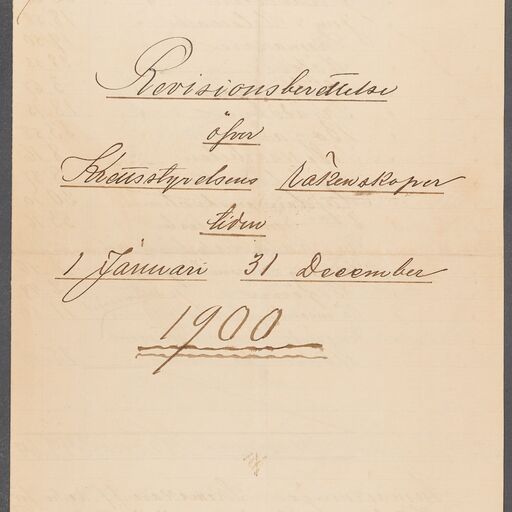 Revisionsberättelse
öfver
Kretsstyrelsens räkenskaper
tiden
1 Januari 31 December
1900